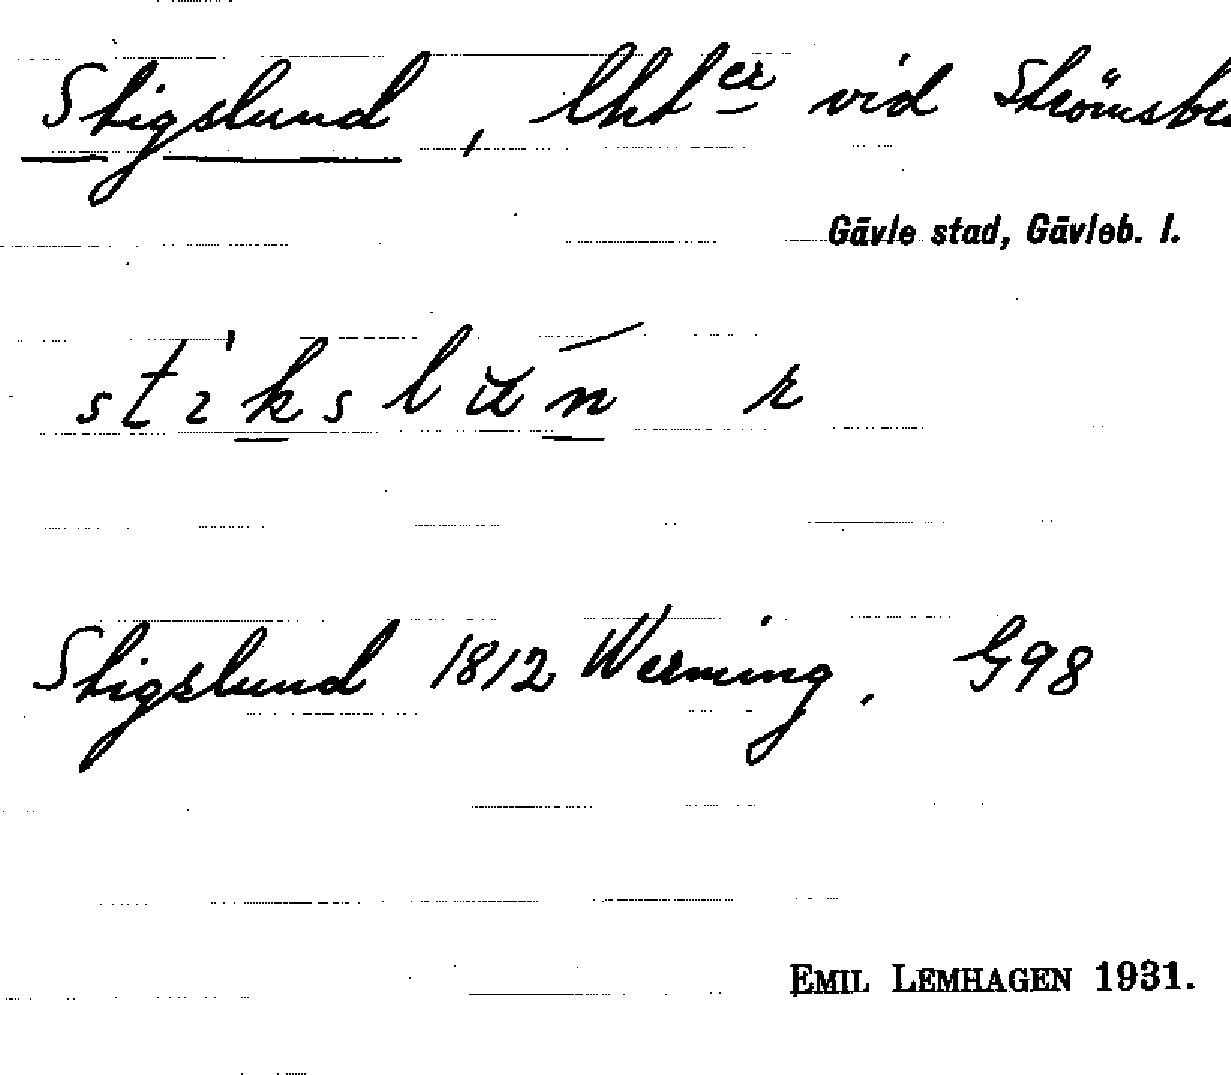 Stigslund, lht<sup>er</sup> vid Strömsbr
Gävle stad, Gävleb. l.
stikslŭn r
Stigslund 1812 Werming, G98
EMIL LEMHAGEN 1931.